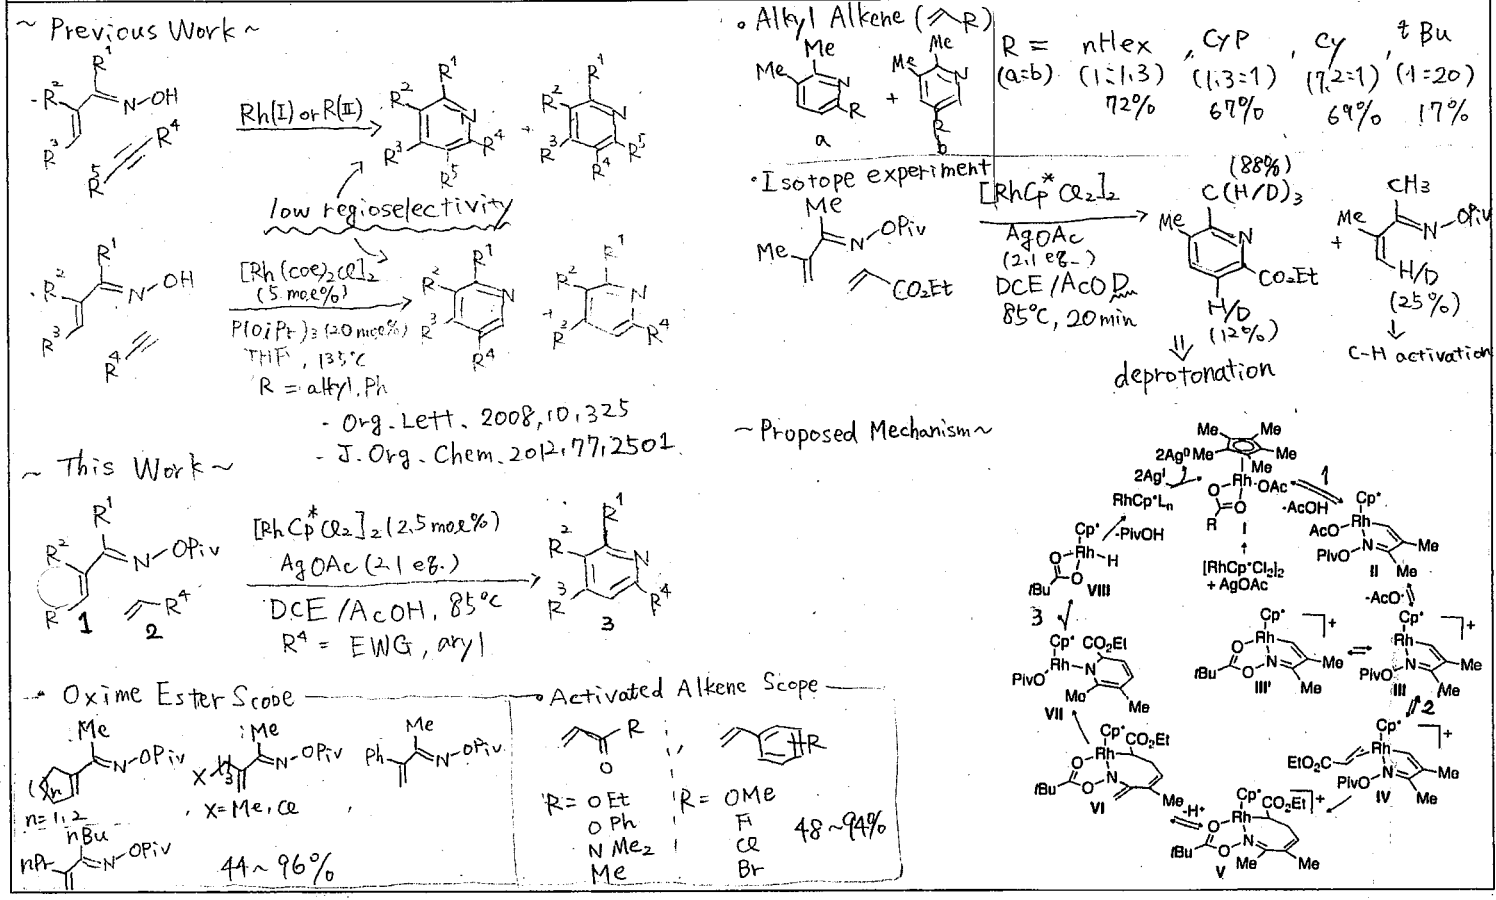 ~ Previous Work ~
R¹
R²
N-OH
R³
R⁴
R⁵
Rh(I) or R(III)
R¹
R²
N
R³
R⁴
R⁵
+
R¹
R²
N
R³
R⁴
R⁵
low regioselectivity
R¹
R²
N-OH
R³
R⁴
[Rh(coe)₂Cl]₂
(5 mol%)
P(OiPr)₃ (20 mol%)
THF, 135℃
R = alkyl, Ph
R¹
R²
N
R³
R⁴
+
R¹
R²
N
R³
R⁴
- Org. Lett. 2008, 10, 325
- J. Org. Chem. 2012, 77, 2501.
~ This Work ~
R¹
R²
N-OPiv
R³
1
R⁴
2
[RhCp*Cl₂]₂ (2.5 mol%)
AgOAc (2.1 eq.)
DCE/AcOH, 85℃
R⁴ = EWG, aryl
R¹
R²
N
R³
R⁴
3
· Oxime Ester Scope
Me
N-OPiv
( )n
n=1,2
Me
X ( )₃
N-OPiv
X=Me, Cl
,
Me
Ph
N-OPiv
nBu
nPr
N-OPiv
44~96%
· Activated Alkene Scope
R
O
,
R
R= OEt
OPh
NMe₂
Me
R= OMe
F
Cl
Br
48~94%
· Alkyl Alkene ( R)
Me
Me
N
R
a
+
Me
Me
N
R
b
R = nHex, CyP, Cy, tBu
(a:b) (1:1.3) (1.3:1) (7.2:1) (1:20)
72% 67% 69% 17%
· Isotope experiment
Me
Me
N-OPiv
CO₂Et
[RhCp*Cl₂]₂
AgOAc
(2.1 eq.)
DCE/AcOD
85℃, 20 min
(88%)
C(H/D)₃
Me
N
CO₂Et
H/D
(12%)
deprotonation
+
CH₃
Me
N-OPiv
H/D
(25%)
C-H activation
~ Proposed Mechanism ~
Me
Me
Me
Me
Me
2Ag⁰
2Agᴵ
RhCp*Lₙ
Rh
OAc
O
O
R
I
1
-AcOH
[RhCp*Cl₂]₂
+ AgOAc
Cp*
AcO
Rh
PivO
N
Me
Me
II
-AcO⁻
Cp*
Rh
PivO
N
Me
Me
+
III
Cp*
Rh
O
O
tBu
N
Me
Me
+
III'
2
Cp*
EtO₂C
Rh
PivO
N
Me
Me
+
IV
Cp*
CO₂Et
Rh
O
O
tBu
N
Me
Me
+
V
-H⁺
Cp*
CO₂Et
Rh
O
O
tBu
N
Me
VI
Cp*
CO₂Et
Rh
PivO
N
Me
Me
VII
3
Cp*
Rh
H
O
O
tBu
VIII
-PivOH